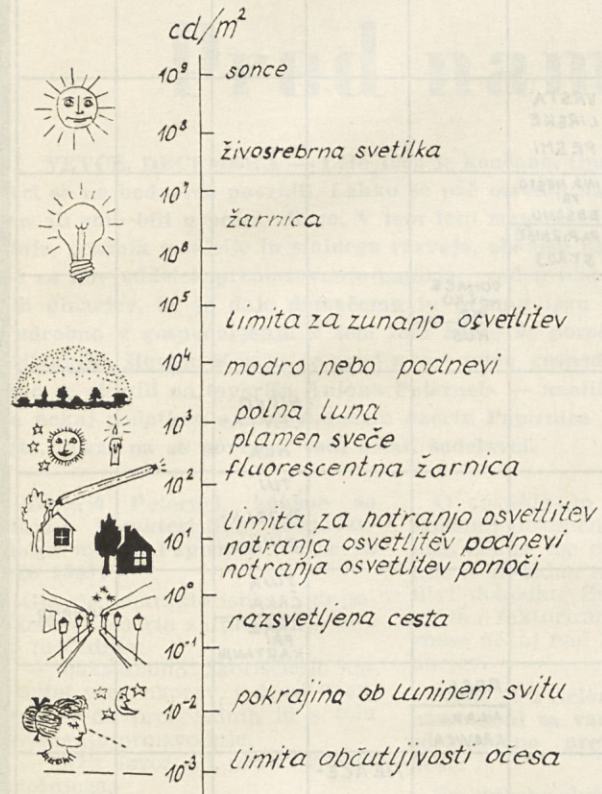 cd/m²
10⁹ sonce
10⁸
živosrebrna svetilka
10⁷
žarnica
10⁶
10⁵
limita za zunanjo osvetlitev
10⁴ modro nebo podnevi
10³ polna luna
plamen sveče
10² fluorescentna žarnica
limita za notranjo osvetlitev
10¹ notranja osvetlitev podnevi
notranja osvetlitev ponoči
10⁰
razsvetljena cesta
10⁻¹
10⁻² pokrajina ob luninem svitu
10⁻³ limita občutljivosti očesa